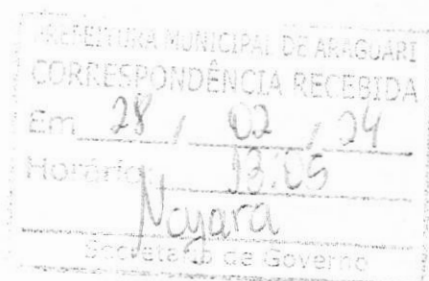 PREFEITURA MUNICIPAL DE ARAGUARI
CORRESPONDÊNCIA RECEBIDA
Em 28 / 02 / 24
Horário 13:05
Nayara
Secretaria de Governo